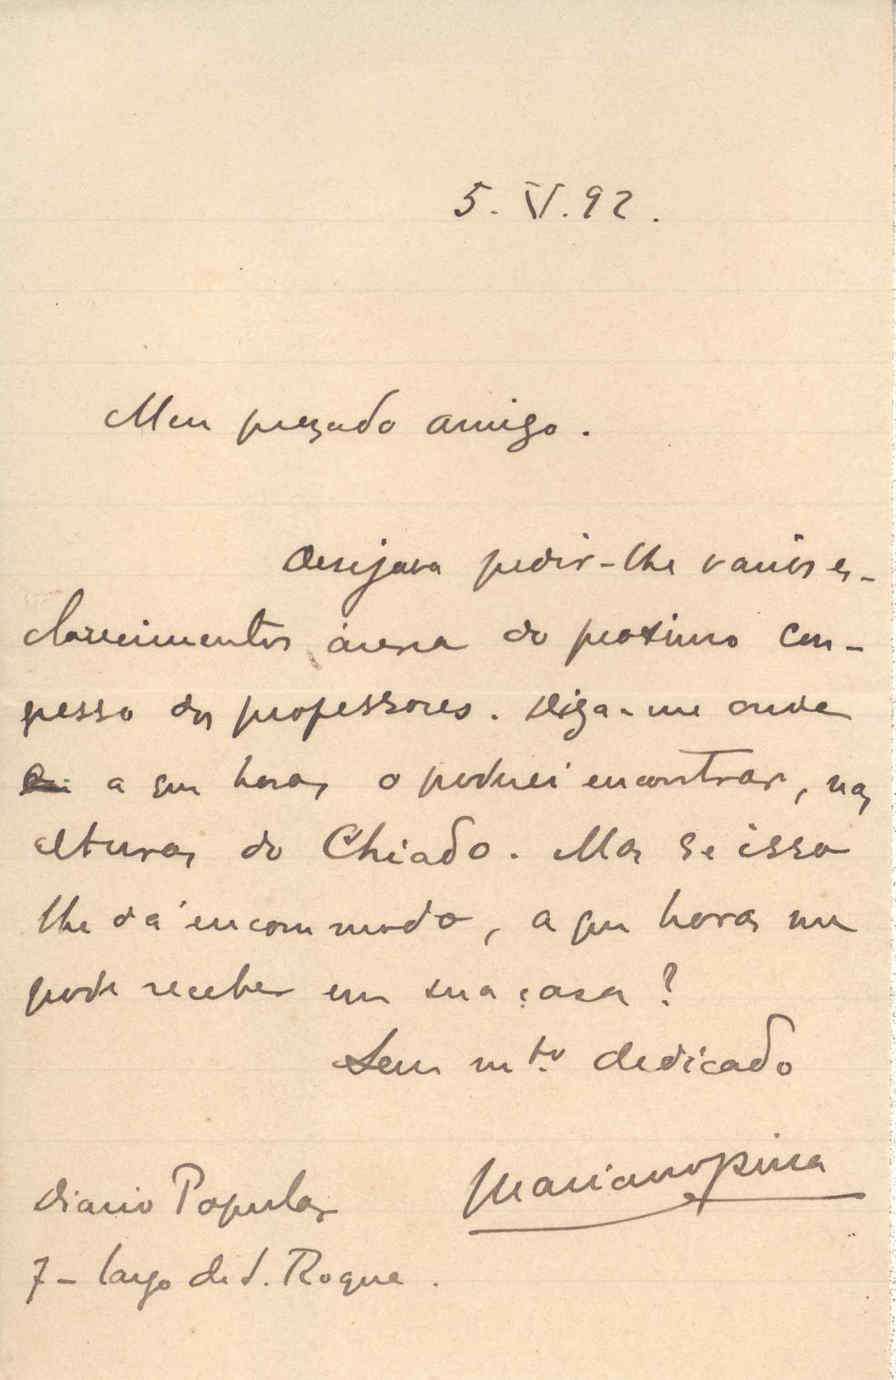 5. VI. 92.
Meu prezado amigo.
Desejava pedir-lhe varios es-
clarecimentos ácerca do proximo con-
gresso dos professores. Diga-me onde
a que horas o poderei encontrar, nas
alturas do Chiado. Mas se isso
lhe dá encommodo, a que horas me
pode receber em sua casa?
Seu mto. dedicado
Mariano Pina
Diario Popular
7 - largo de S. Roque.